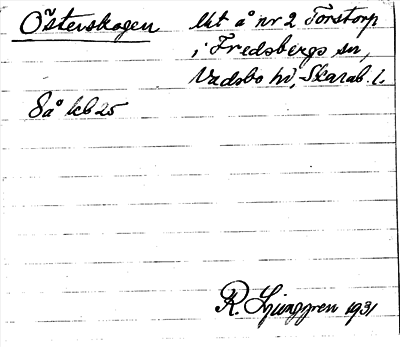 Österskogen
Ut å nr 2 Torstorp
i Fredsbergs sn,
Vadsbo hd, Skarab. l.
Så kb 25
R. Ljunggren 1931